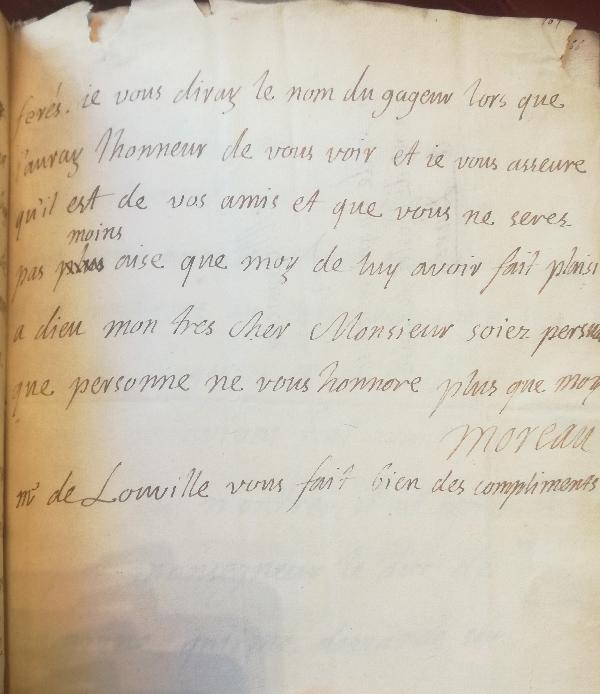 ferés. ie vous diray le nom du gageur lors que
j'auray lhonneur de vous voir et ie vous asseure
qu'il est de vos amis et que vous ne seres
moins
pas plus aise que moy de luy avoir fait plaisi
a dieu mon tres cher Monsieur soiez persua
que personne ne vous honnore plus que moy
Moreau
mr de Louville vous fait bien des compliments